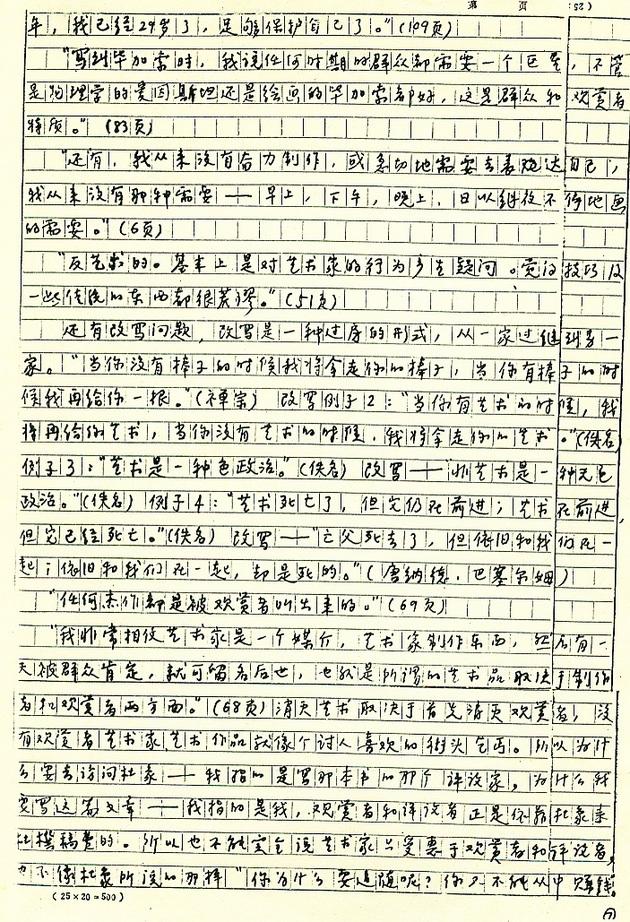 第 页 (25:
年，我已经29岁了，足够保护自己了。”(109页)
“写到毕加索时，我说任何时期的群众都需要一个巨星，不管
是物理学的爱因斯坦还是绘画的毕加索都好，这是群众和 观赏者
特质。”(83页)
“还有，我从来没有奋力制作，或急切地需要去表现达自己，
我从来没有那种需要——早上，下午，晚上，日以继夜不停地画
的需要。”(6页)
“反艺术的。基本上是对艺术家的行为产生疑问。觉得技巧及
一些传统的东西都很荒谬。”(51页)
还有改写问题，改写是一种过房的形式，从一家过继到另一
家。“当你没有棒子的时候我将拿走你的棒子，当你有棒子的时
候我再给你一根。”(禅宗) 改写例子2：“当你有艺术的时候，我
将再给你艺术，当你没有艺术的时候，我将拿走你的艺术。”(佚名)
例子3：“艺术是一种色政治。”(佚名) 改写——“非艺术是一种无色
政治。”(佚名) 例子4：“艺术死亡了，但它仍在前进；艺术在前进，
但它已经死亡。”(佚名) 改写——“亡父死去了，但依旧和我们在一
起；依旧和我们在一起，却是死的。”(唐纳德·巴塞尔姆)
“任何杰作都是被观赏者叫出来的。”(69页)
“我非常相信艺术家是一个媒介，艺术家制作东西，然后有一
天被群众肯定，就可留名后世，也就是所谓的艺术品取决于制作
者和观赏者两方面。”(68页) 消灭艺术取决于首先消灭观赏者，没
有观赏者艺术家艺术作品就像个讨人喜欢的街头乞丐。所以为什
么要去访问杜象——我指的是写那本书的那个评议家，为什么我
要写这篇文章——我指的是我，观赏者和评议者正是依靠杜象来
杜撰稿费的。所以也不能完全说艺术家只受惠于观赏者和评议者，
也不像杜象所说的那样“你为什么要追随呢？你又不能从中赚钱。
(25×20=500)